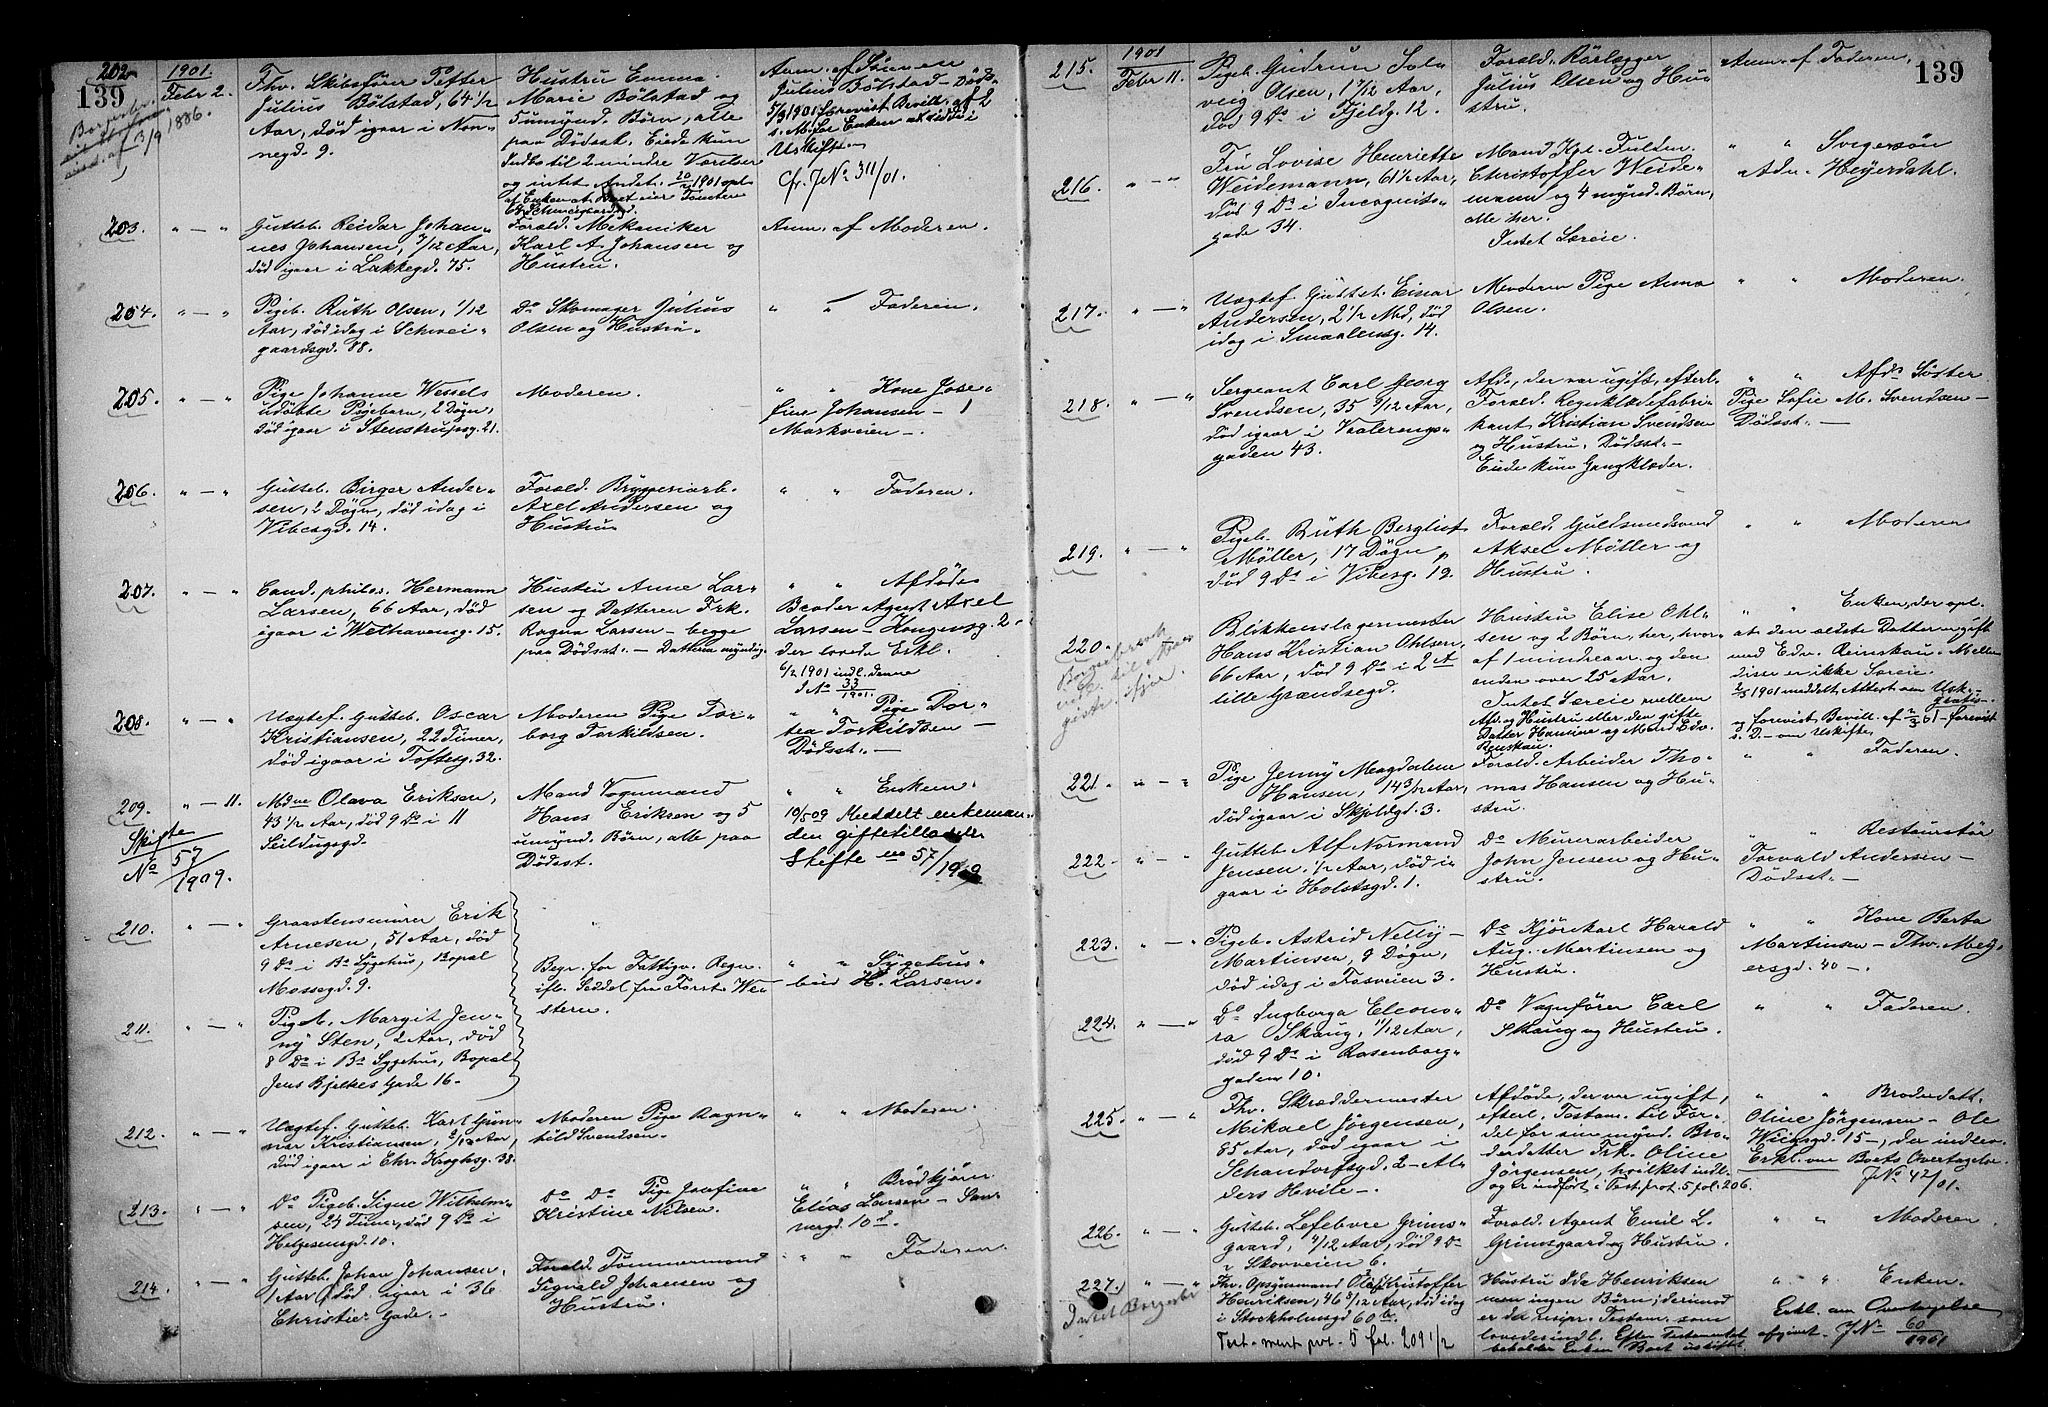 139
202.
1901.
Febr 2.
Fhv. Skibsfører Petter
Julius Bølstad, 64 1/2
Aar, død igaar i Non-
negd. 9.
Hustru Emma
Marie Bølstad og
5 umynd. Børn, alle
paa Dødsst. Eiede kun
Indbo til 2 mindre Værelser
og intet Andet. 20/2 1901 opl.
af Enken at Boet eier Tomten
Anm. af Sønnen
Julius Bølstad - Døds-
5/3 1901 forevist Bevill. af 2
s. M. for Enken at sidde i
Uskifte
Cfr. J No 311/01.
aust. af 13/9 1886.
203.
" — "
Gutteb. Reidar Johan-
nes Johansen, 7/12 Aar,
død igaar i Lakkegd. 75.
Foræld. Mekaniker
Karl A. Johansen og
Hustru.
Anm. af Moderen.
204.
" — "
Pigeb. Ruth Olsen, 1/12
Aar, død idag i Schwei-
gaardsgd. 88.
Do Skomager Julius
Olsen og Hustru
" " Faderen.
205.
" — "
Pige Johanne Wessels
udøbte Pigebarn, 2 Døgn,
død igaar i Stenstrupsg. 21.
Moderen.
" " Kone Jose-
fine Johansen - 1
Markveien -.
206.
" — "
Gutteb. Birger Ander-
sen, 2 Døgn, død idag i
Vibesgd. 14.
Foræld. Bryggeriarb.
Axel Andersen og
Hustru
" " Faderen.
207.
" — "
Cand. philos. Hermann
Larsen, 66 Aar, død
igaar i Welhavensg. 15.
Hustru Anne Lar-
sen og Datteren Frk.
Ragna Larsen - begge
paa Dødsst. - Datteren myndig.
" " Afdødes
Broder Agent Axel
Larsen - Kongensg. 2 -
der lovede Erkl.
6/2 1901 indl. denne
J No 33/1901.
208.
" — "
Uægtef. Gutteb. Oscar
Kristiansen, 22 Timer,
død igaar i Toftesg. 32.
Moderen Pige Tor-
borg Torkildsen.
" " Pige Dor-
tea Torkildsen -
Dødsst. -
209.
" — 11.
Skifte
No 57/1909.
Mdme Olava Eriksen,
43 1/2 Aar, død 9 Ds i 11
Teildugsgd.
Mand Vognmand
Hans Eriksen og 5
umynd. Børn, alle paa
Dødsst.
" " Enkem.
19/5 09 Meddelt enkeman-
den giftetilladelse
Skifte no 57/1909
210.
" — "
Graastensmurer Erik
Arnesen, 51 Aar, død
9 Ds i Bs Sygehus, Bopæl
Mossegd. 9.
Begr. for Fattigv. Regn.
ifl. Seddel fra Forst. We-
stern.
" " Sygehus-
bud H. Larsen.
211.
" — "
Pigeb. Margit Jen-
ny Sten, 2 Aar, død
8 Ds i Bs Sygehus, Bopæl
Jens Bjelkes Gade 16 -
212.
" — "
Uægtef. Gutteb. Karl Gun-
nar Kristiansen, 2/12 Aar,
død igaar i Chr. Kroghsg. 38.
Moderen Pige Ragn-
hild Svendsen.
" " Moderen.
213.
" — "
Do Pigeb. Signe Wilhelm-
sen, 24 Timer, død 9 Ds i
Helgesensgd. 10.
Do Do Pige Josefine
Kristine Nilsen.
" " Brødkjører
Elias Larsen - San-
nergd. 10 d.
214.
" — "
Gutteb. Johan Johansen,
1 Aar, død igaar i 36
Christies Gade. -
Foræld. Tømmermand
Sigvald Johansen og
Hustru.
" " Faderen.
139
215.
1901
Febr 11.
Pigeb. Gudrun Sol-
veig Olsen, 1 7/12 Aar,
død 9 Ds i Fjeldg. 12.
Foræld. Rørlægger
Julius Olsen og Hu-
stru.
Anm. af Faderen.
216.
" — "
Fru Lovise Henriette
Weidemann, 61 1/2 Aar,
død 9 Ds i Incognito-
gade 34.
Mand Kpl. Fuldm.
Christoffer Weide-
mann og 4 mynd. Børn,
alle her.
Intet Særeie.
" " Svigersøn
Adv. Heyerdahl.
217.
" — "
Uægtef. Gutteb. Einar
Andersen, 2 1/2 Md, død
idag i Smaalensg. 14.
Moderen Pige Anna
Olsen.
" " Moderen.
218.
" — "
Sergeant Carl Georg
Svendsen, 35 9/12 Aar,
død igaar i Vaalerengs-
gaden 43.
Afdø., der var ugift, efterl.
Foræld. Regnklædefabri-
kant Kristian Svendsen
og Hustru, Dødsst. -
Eiede kun Gangklæder.
" " Afds Søster
Pige Sofie M. Svendsen -
Dødsst. -
219.
" — "
Pigeb. Ruth Bergliot
Møller, 17 Døgn,
død 9 Ds i Vibesg. 19.
Foræld. Guldsmedsvend
Aksel Møller og
Hustru.
" " Moderen
220.
Blikkenslagermester
Hans Kristian Ohlsen,
66 Aar, død 9 Ds i 2 A
lille Grændsegd.
Hustru Elise Ohl-
sen og 2 Børn, her, hvor-
af 1 mindreaar. og den
anden over 25 Aar.
Intet Særeie mellem
Afd. og Hustru eller den gifte
Datter Hansine og Mand Edv.
Reinskau.
" " Enken, der opl.
at den ældste Datter er gift
med Edv. Reinskau. Mellem
disse er ikke Særeie.
2/3 1901 meddelt Attest om Usk.
gratis -
og forevist Bevill. af 2/3 01 - forevist
s. D. - om Uskifte.
221.
" — "
Pige Jenny Magdalene
Hansen, 14 3/12 Aar,
død igaar i Skjoldgd. 3.
Foræld. Arbeider Tho-
mas Hansen og Hu-
stru.
" " Faderen.
222.
" — "
Gutteb. Alf Normand
Jensen, 1/2 Aar, død i-
gaar i Holstsgd. 1.
Do Murerarbeider
John Jensen og Hu-
stru.
" " Restauratør
Torvald Andersen -
Dødsst. -
223.
" — "
Pigeb. Astrid Nelly -
Martinsen, 9 Døgn,
død idag i Fosveien 3.
Do Kjørekarl Harald
Aug. Martinsen og
Hustru.
" " Kone Berta
Martinsen - Thv. Mey-
ersgd. 40 -.
224.
" — "
Do Ingborga Eleono-
ra Skaug, 11/12 Aar,
død 9 Ds i Rosenborg-
gaden 10.
Do Vognfører Carl
Skaug og Hustru.
" " Faderen.
225.
" — "
Fhv. Skræddermester
Mikael Jørgensen,
85 Aar, død igaar i
Schandorfsgd. 2 - Al-
ders Hvile -.
Afdøde, der var ugift,
efterl. Testam. til For-
del for sin mynd. Bro-
derdatter Frk. Oline
Jørgensen, hvilket indl.
og er indført i Test. prot. 5 fol. 206.
" " Broderdatt.
Oline Jørgensen - Ole
Wiigsgd. 15 -, der indlev.
Erkl. om Boets Overtagelse.
J No 42/01.
226.
" — "
Gutteb. Lefebvre Grims-
gaard, 4/12 Aar, død 9 Ds
i Skovveien 6.
Foræld. Agent Emil L.
Grimsgaard og Hustru.
" " Moderen.
227.
" — "
Intet Borgerbr.
Fhv. Opsynsmand Olaf Kristoffer
Henriksen, 46 3/12 Aar, død idag
i Stockholmsgd 60 a.
Test. - mert. prot. 5 fol. 209 1/2
Hustru Ida Henriksen
men ingen Børn; derimod
er der resipr. Testam. som
lovedes indl. Efter Testamentet
beholder Enken Boet uskiftet
" " Enken.
Erkl. om Overtagelse
afgivet. J No 60/1901